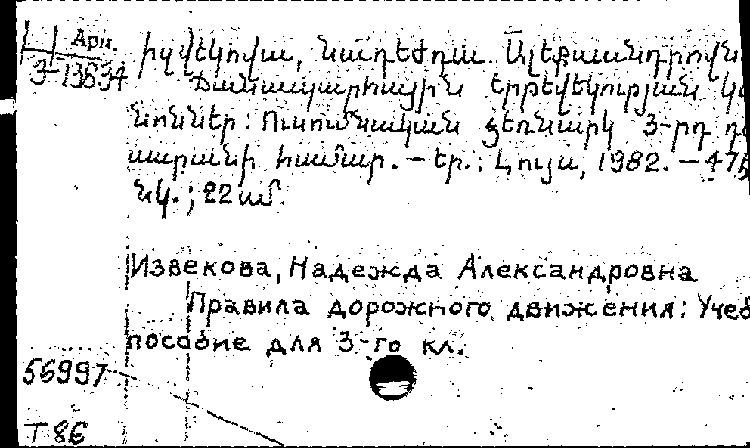 Арм.
3-13834
Իզվեկովա, Նադեժդա Ալեքսանդրովն
Ճանապարհային երթևեկության կա
նոններ: Ուսումնական ձեռնարկ 3-րդ դա
սարանի համար. — Եր.: Լույս, 1982. — 47
նկ.; 22 սմ.
Извекова, Надежда Александровна
Правила дорожного движения: Учеб
пособие для 3-го кл.
56997
Т 86